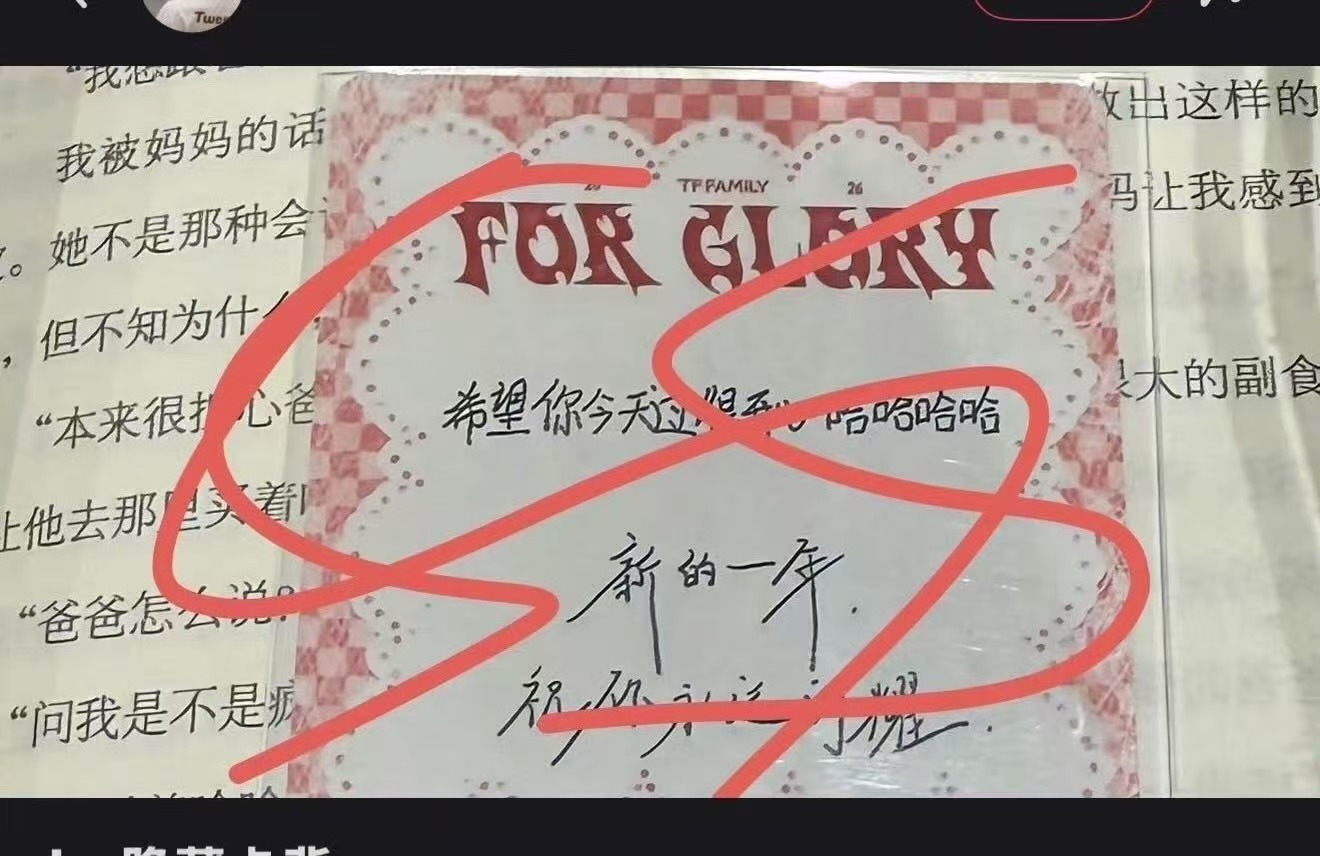 Twen
"我想跟
我被妈妈的话
做出这样的
。她不是那种会
妈让我感到
,但不知为什么
"本来很担心爸
很大的副食
让他去那里买着
"爸爸怎么说?
"问我是不是疯
25 TF FAMILY 26
FOR GLORY
希望你今天过得 哈哈哈哈
新的一年.
祝你永远闪耀.